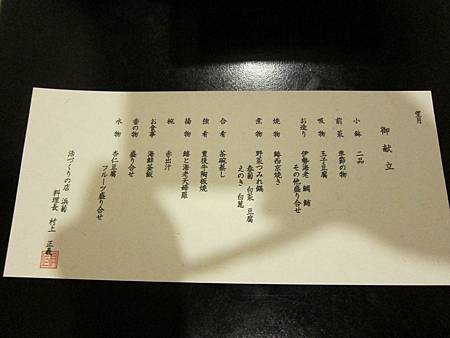 望月
御献立
小鉢 二品
前菜 季節の物
吸物 玉子豆腐
お造り 伊勢海老 鯛 鮪
その他盛り合せ
焼物 鰆西京焼き
煮物 野菜つみれ鍋
春菊 白菜 豆腐
えのき 白葱
合肴 茶碗蒸し
強肴 豊後牛陶板焼
揚物 鱚と海老天婦羅
椀 赤出汁
お食事 海鮮茶飯
香の物 盛り合せ
水物 杏仁豆腐
フルーツ盛り合せ
活づくりの店 浜菊
料理長 村上 正義